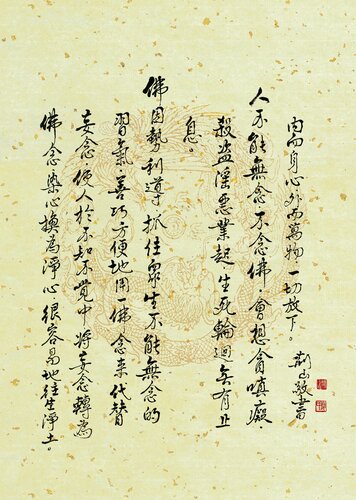 內而身心外而萬物一切放下。
人不能無念不念佛會想貪嗔癡
殺盜淫惡業起生死輪迴無有止
息。
佛因勢利導抓住眾生不能無念的
習氣善巧方便地用一佛念來代替
妄念使人於不知不覺中將妄念轉為
佛念染心換為淨心很容易地往生淨土。
敬書